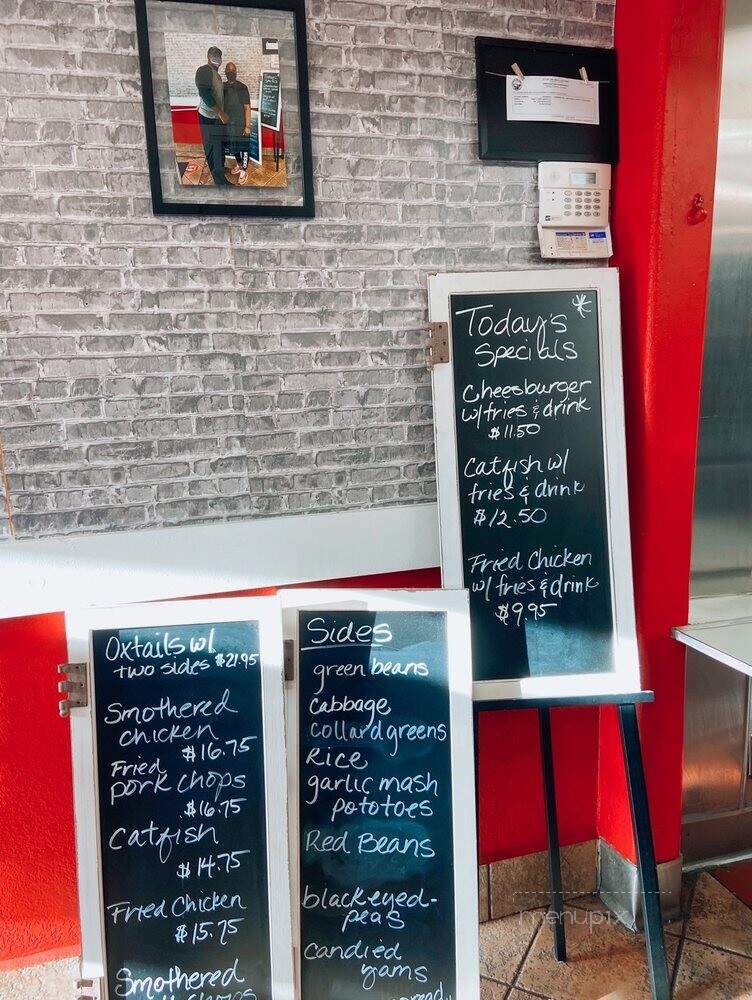 Today's
Specials
Cheesburger
w/fries & drink
$11.50
Catfish w/
fries & drink
$12.50
Fried Chicken
w/ fries & drink
$9.95
Oxtails w/
two sides $21.95
Smothered
chicken
$16.75
Fried
pork chops
$16.75
Catfish
$14.75
Fried Chicken
$15.75
Smothered
Sides
green beans
cabbage
collard greens
Rice
garlic mash
pototoes
Red Beans
blackeyed-
peas
candied
yams
menupix